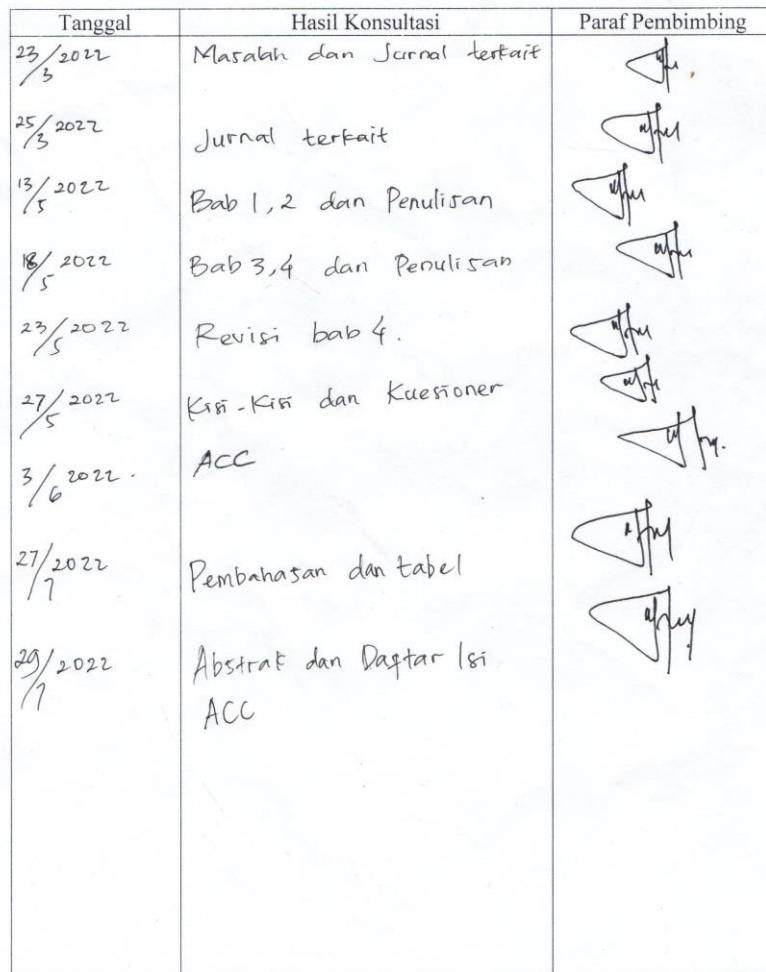 Tanggal Hasil Konsultasi Paraf Pembimbing
23/3 2022 Masalah dan Jurnal terkait
25/3 2022 Jurnal terkait
13/5 2022 Bab 1, 2 dan Penulisan
18/5 2022 Bab 3, 4 dan Penulisan
23/5 2022 Revisi bab 4.
27/5 2022 Kisi-Kisi dan Kuesioner
3/6 2022. ACC
27/7 2022 Pembahasan dan tabel
29/7 2022 Abstrak dan Daftar Isi
ACC